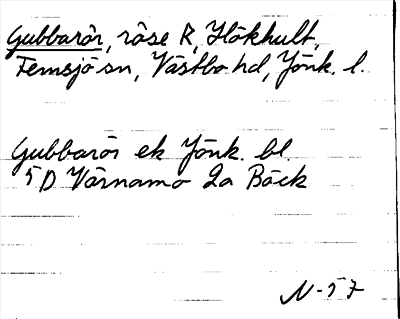 Gubbarör, röse R, Hökhult,
Femsjö sn, Västbo hd, Jönk. l.
Gubbarör ek Jönk. bl.
5D Värnamo 2a Bäck
N-57